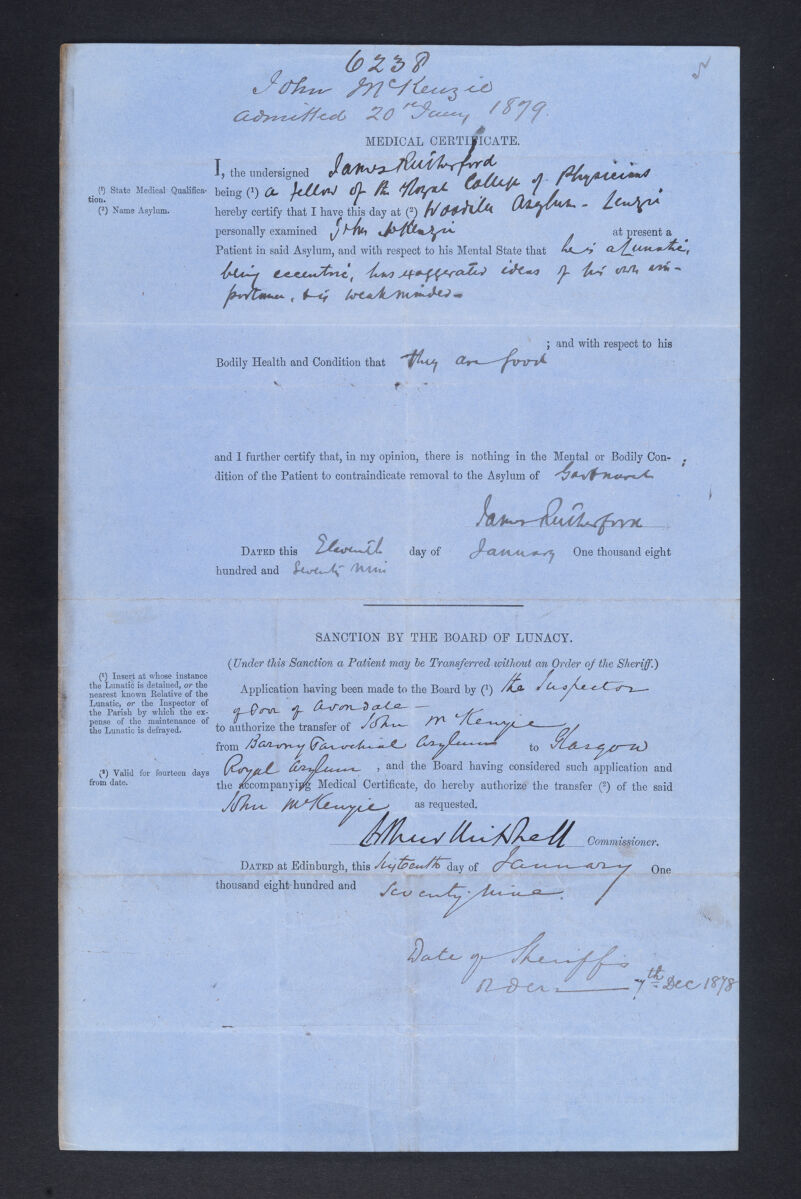 6238
John McKenzie
admitted 20th Jany 1879.
MEDICAL CERTIFICATE.
I, the undersigned James Rutherford
(¹) State Medical Qualifica-
tion.
being (¹) a fellow of the Royal College of Physicians
(²) Name Asylum.
hereby certify that I have this day at (²) Woodilee Asylum - Lenzie
personally examined John McKenzie at present a
Patient in said Asylum, and with respect to his Mental State that he is a Lunatic,
being eccentric, has exaggerated ideas of his own im-
portance, & is weakminded -
; and with respect to his
Bodily Health and Condition that they are good
and I further certify that, in my opinion, there is nothing in the Mental or Bodily Con-
dition of the Patient to contraindicate removal to the Asylum of Gartnavel ;
James Rutherford
DATED this Eleventh day of January One thousand eight
hundred and Seventy Nine
SANCTION BY THE BOARD OF LUNACY.
(Under this Sanction a Patient may be Transferred without an Order of the Sheriff.)
(¹) Insert at whose instance
the Lunatic is detained, or the
nearest known Relative of the
Lunatic, or the Inspector of
the Parish by which the ex-
pense of the maintenance of
the Lunatic is defrayed.
Application having been made to the Board by (¹) the Inspector
of Poor of Avondale -
to authorize the transfer of John McKenzie
from Barony Parochial Asylum to Glasgow
(²) Valid for fourteen days
from date.
Royal Asylum , and the Board having considered such application and
the accompanying Medical Certificate, do hereby authorize the transfer (²) of the said
John McKenzie as requested.
Arthur Mitchell Commissioner.
DATED at Edinburgh, this Sixteenth day of January One
thousand eight hundred and Seventy-Nine.
Date of Sheriff's
Order - 7th Dec 1878